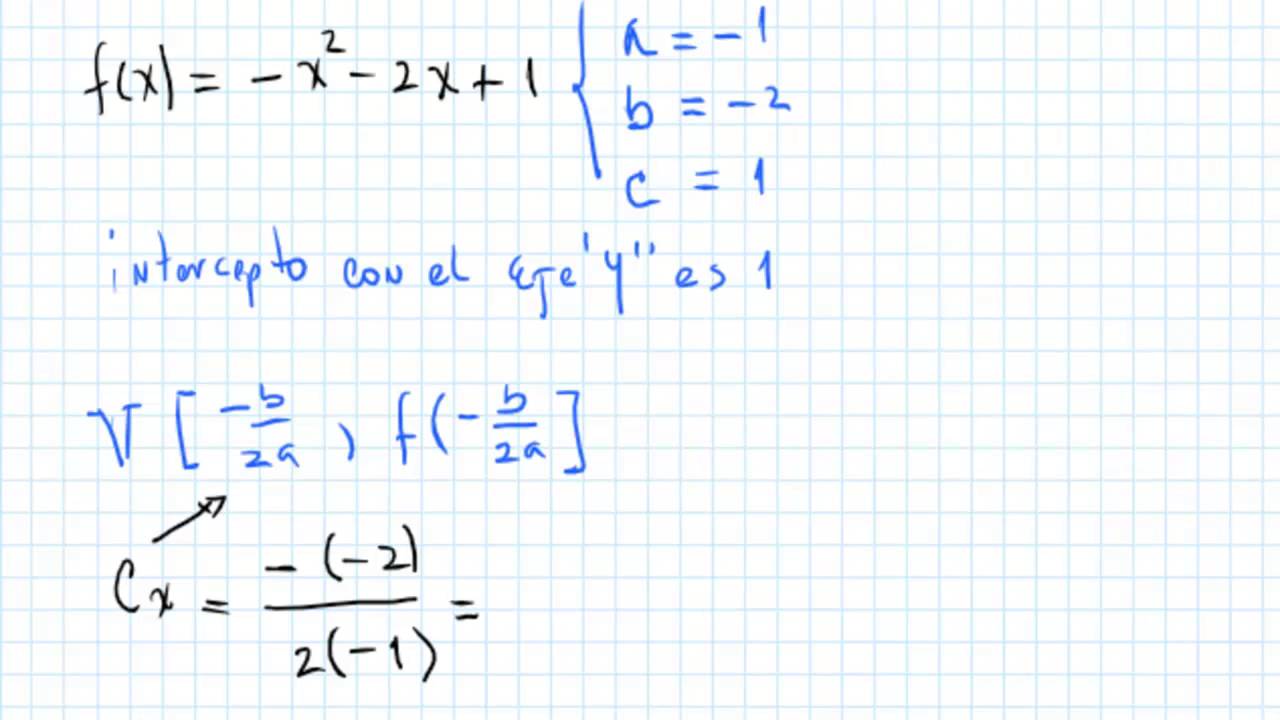 f(x) = -x² - 2x + 1 { a = -1
b = -2
c = 1
intercepto con el eje 'y'' es 1
V [ -b/2a , f(-b/2a ]
Cx = -(-2)/2(-1) =